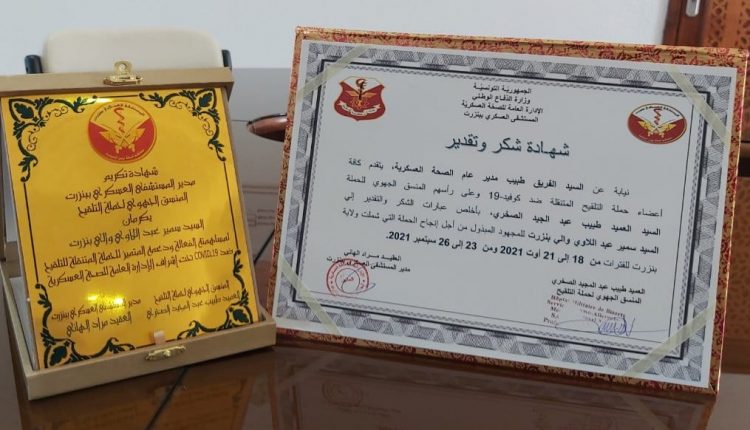 شهادة تكريم
مدير المستشفى العسكري ببنزرت
المنسق الجهوي لحملة التلقيح
يكرمان
السيد سمير عبد اللاوي والي بنزرت
لمساهمته الفعالة ودعمه المتميز للحملة المتنقلة للتلقيح
ضد COVID19 تحت إشراف الإدارة العامة للصحة العسكرية
المنسق الجهوي لحملة التلقيح
العميد طبيب عبد المجيد الصغري
مدير المستشفى العسكري ببنزرت
العقيد مراد الهاني
الجمهورية التونسية
وزارة الدفاع الوطني
الإدارة العامة للصحة العسكرية
المستشفى العسكري ببنزرت
شهادة شكر وتقدير
نيابة عن السيد الفريق طبيب مدير عام الصحة العسكرية، يتقدم كافة
أعضاء حملة التلقيح المتنقلة ضد كوفيد-19 وعلى رأسهم المنسق الجهوي للحملة
السيد العميد طبيب عبد الجيد الصغري، بأخلص عبارات الشكر والتقدير إلى
السيد سمير عبد اللاوي والي بنزرت للمجهود المبذول من أجل إنجاح الحملة التي شملت ولاية
بنزرت للفترات من 18 إلى 21 أوت 2021 ومن 23 إلى 26 سبتمبر 2021.
مراد الهاني
مدير المستشفى العسكري ببنزرت
العميد طبيب عبد المجيد الصغري
المنسق الجهوي لحملة التلقيح